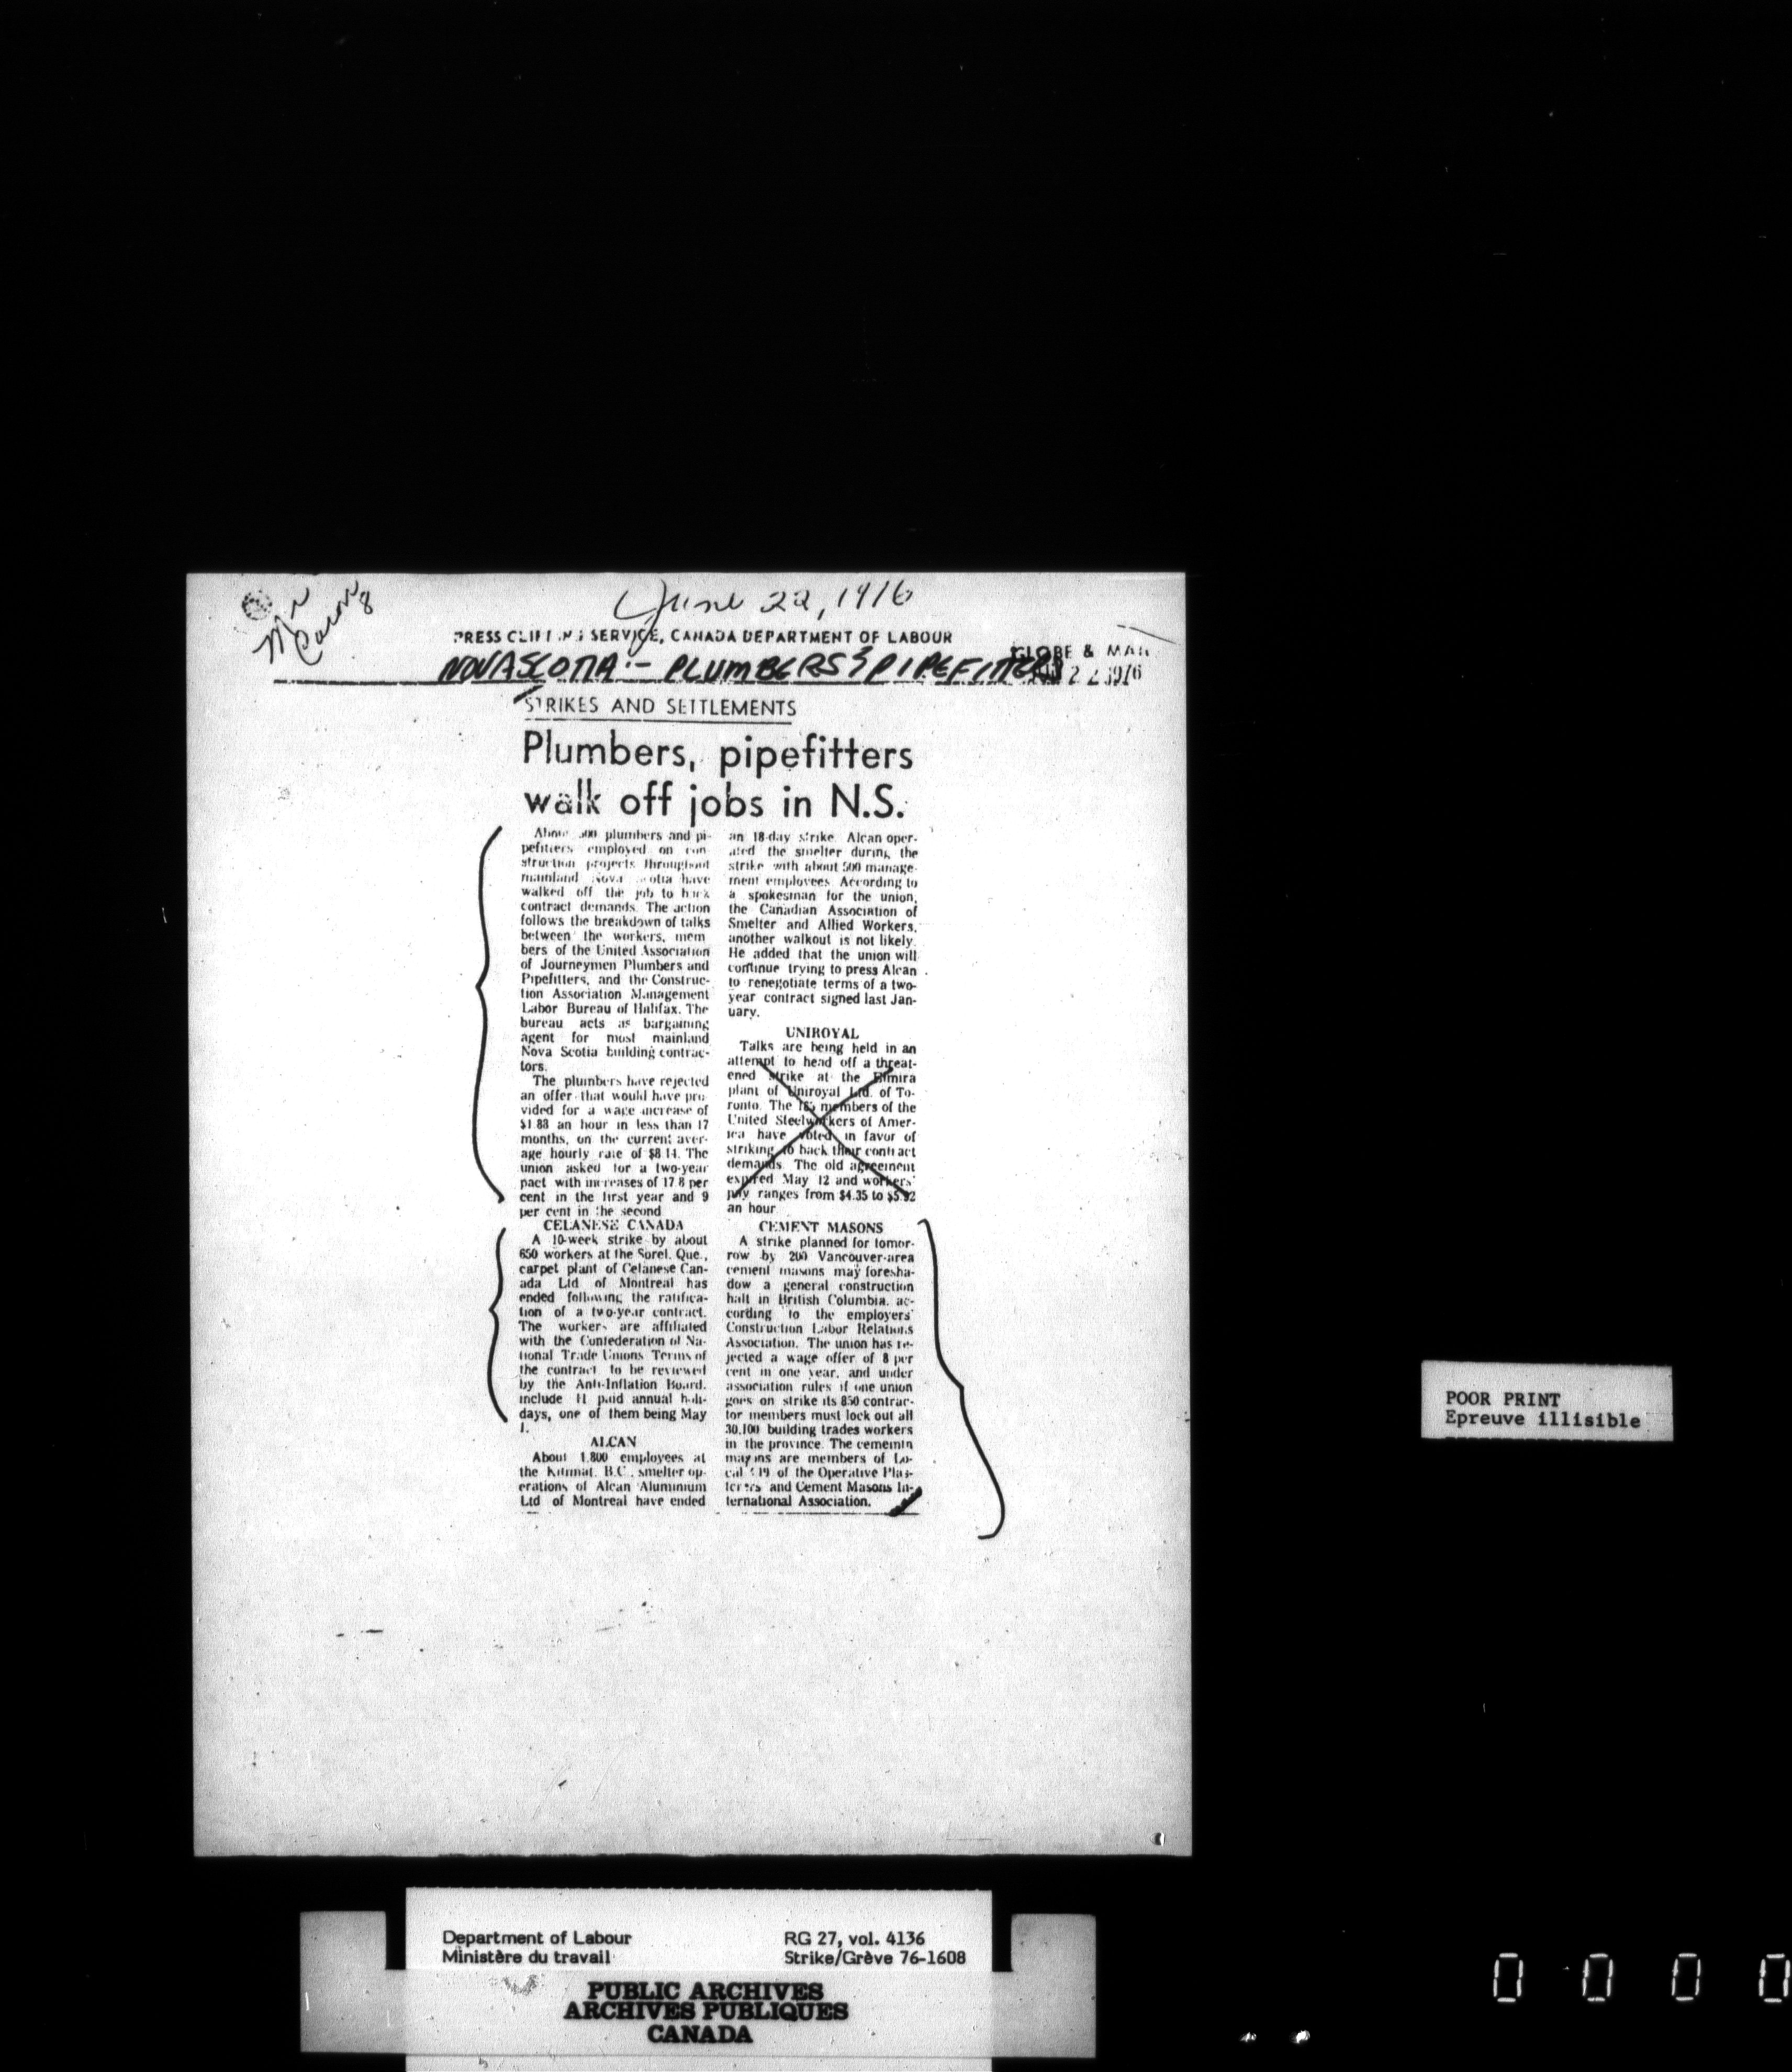 June 22, 1976
PRESS CLIPPING SERVICE, CANADA DEPARTMENT OF LABOUR
GLOBE & MAIL
NOVA SCOTIA:- PLUMBERS & PIPEFITTERS
22 1976
STRIKES AND SETTLEMENTS
Plumbers, pipefitters
walk off jobs in N.S.
About plumbers and pi-
pefitters employed on con-
struction projects throughout
mainland Nova Scotia have
walked off the job to back
contract demands. The action
follows the breakdown of talks
between the workers, mem
bers of the United Association
of Journeymen Plumbers and
Pipefitters, and the Construc-
tion Association Management
Labor Bureau of Halifax. The
bureau acts as bargaining
agent for most mainland
Nova Scotia building contrac-
tors.
The plumbers have rejected
an offer that would have pro
vided for a wage increase of
$1.88 an hour in less than 17
months, on the current aver-
age hourly rate of $8.14. The
union asked for a two-year
pact with increases of 17.8 per
cent in the first year and 9
per cent in the second
CELANESE CANADA
A 10-week strike by about
650 workers at the Sorel, Que.,
carpet plant of Celanese Can-
ada Ltd of Montreal has
ended following the ratifica-
tion of a two-year contract.
The workers are affiliated
with the Confederation of Na-
tional Trade Unions Terms of
the contract to be reviewed
by the Anti-Inflation Board.
include 11 paid annual holi-
days, one of them being May
1.
ALCAN
About 1,800 employees at
the Kitimat, B.C., smelter op-
erations of Alcan Aluminium
Ltd of Montreal have ended
an 18-day strike. Alcan oper-
ated the smelter during the
strike with about 500 manage-
ment employees. According to
a spokesman for the union,
the Canadian Association of
Smelter and Allied Workers,
another walkout is not likely.
He added that the union will
continue trying to press Alcan
to renegotiate terms of a two-
year contract signed last Jan-
uary.
UNIROYAL
Talks are being held in an
attempt to head off a threat-
ened strike at the Elmira
plant of Uniroyal Ltd. of To-
ronto. The members of the
United Steelworkers of Amer-
ica have voted in favor of
striking to back their contract
demands. The old agreement
expired May 12 and workers'
pay ranges from $4.35 to $5.92
an hour
CEMENT MASONS
A strike planned for tomor-
row by 200 Vancouver-area
cement masons may foresha-
dow a general construction
halt in British Columbia, ac-
cording to the employers'
Construction Labor Relations
Association. The union has re-
jected a wage offer of 8 per
cent in one year, and under
association rules if one union
goes on strike its 850 contrac-
tor members must lock out all
30,100 building trades workers
in the province. The cememtn
masons are members of Lo-
cal of the Operative Plas-
terers and Cement Masons In-
ternational Association.
POOR PRINT
Epreuve illisible
Department of Labour
Ministère du travail
RG 27, vol. 4136
Strike/Grève 76-1608
PUBLIC ARCHIVES
ARCHIVES PUBLIQUES
CANADA
0 0 0 0